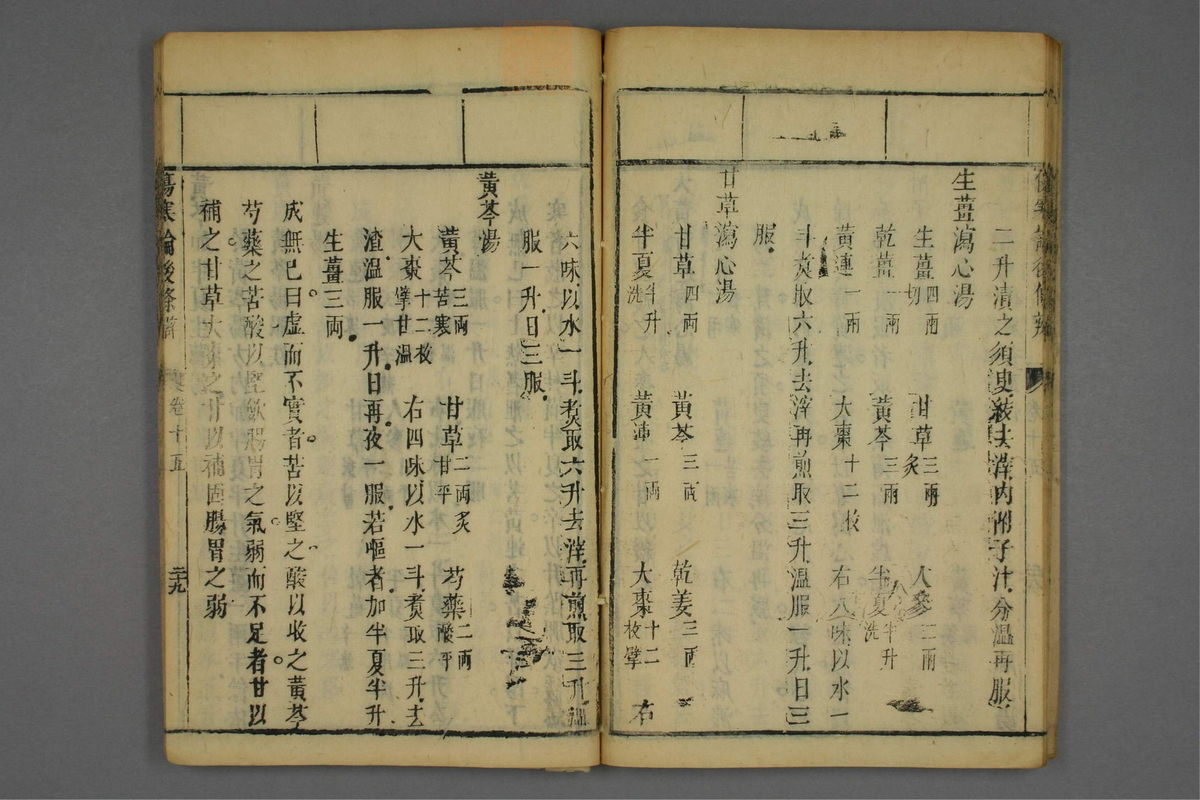 二升漬之須臾絞去滓內附子汁分溫再服
生薑瀉心湯
生薑四兩切 甘草三兩炙 人參三兩
乾薑一兩 黃芩三兩 半夏半升洗
黃連一兩 大棗十二枚 右八味以水一
斗煑取六升去滓再煎取三升溫服一升日三
服
甘草瀉心湯
甘草四兩 黃芩三兩 乾姜三兩
半夏半升洗 黃連一兩 大棗十二枚擘 右
六味以水一斗煑取六升去滓再煎取三升溫
服一升日三服
黃芩湯
黃芩三兩苦寒 甘草二兩炙甘平 芍藥二兩酸平
大棗十二枚擘甘溫 右四味以水一斗煑取三升去
渣溫服一升日再夜一服若嘔者加半夏半升
生薑三兩
成無已曰虛而不實者苦以堅之酸以收之黃芩
芍藥之苦酸以堅斂腸胃之氣弱而不足者甘以
補之甘草大棗之甘以補固腸胃之弱
傷寒論後條辯 卷十五 三九